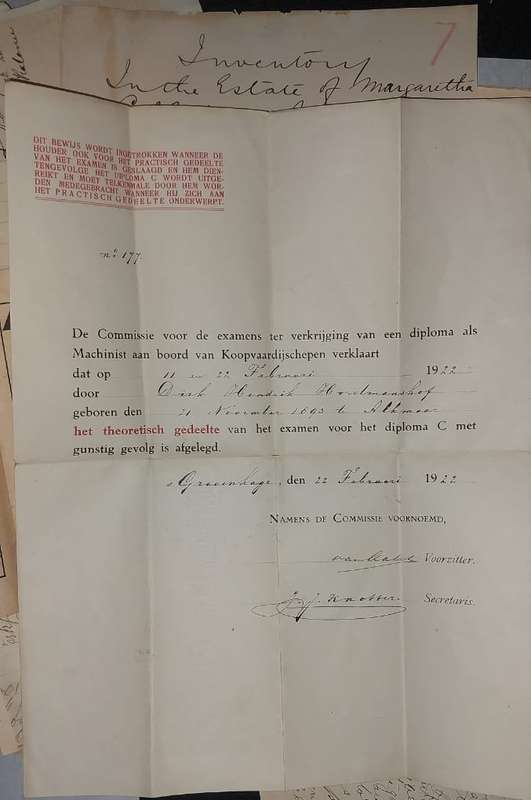 7
Inventory
In the Estate of Margaretha
DIT BEWIJS WORDT INGETROKKEN WANNEER DE
HOUDER OOK VOOR HET PRACTISCH GEDEELTE
VAN HET EXAMEN IS GESLAAGD EN HEM DIEN-
TENGEVOLGE HET DIPLOMA C WORDT UITGE-
REIKT EN MOET TELKENMALE DOOR HEM WOR-
DEN MEDEGEBRACHT WANNEER HIJ ZICH AAN
HET PRACTISCH GEDEELTE ONDERWERPT.
no 177.
De Commissie voor de examens ter verkrijging van een diploma als
Machinist aan boord van Koopvaardijschepen verklaart
dat op 11 en 22 Februari 1922
door Dirk Hendrik
geboren den 21 November 1893 te Alkmaar
het theoretisch gedeelte van het examen voor het diploma C met
gunstig gevolg is afgelegd.
s Gravenhage, den 22 Februari 1922
NAMENS DE COMMISSIE VOORNOEMD,
Voorzitter.
Secretaris.